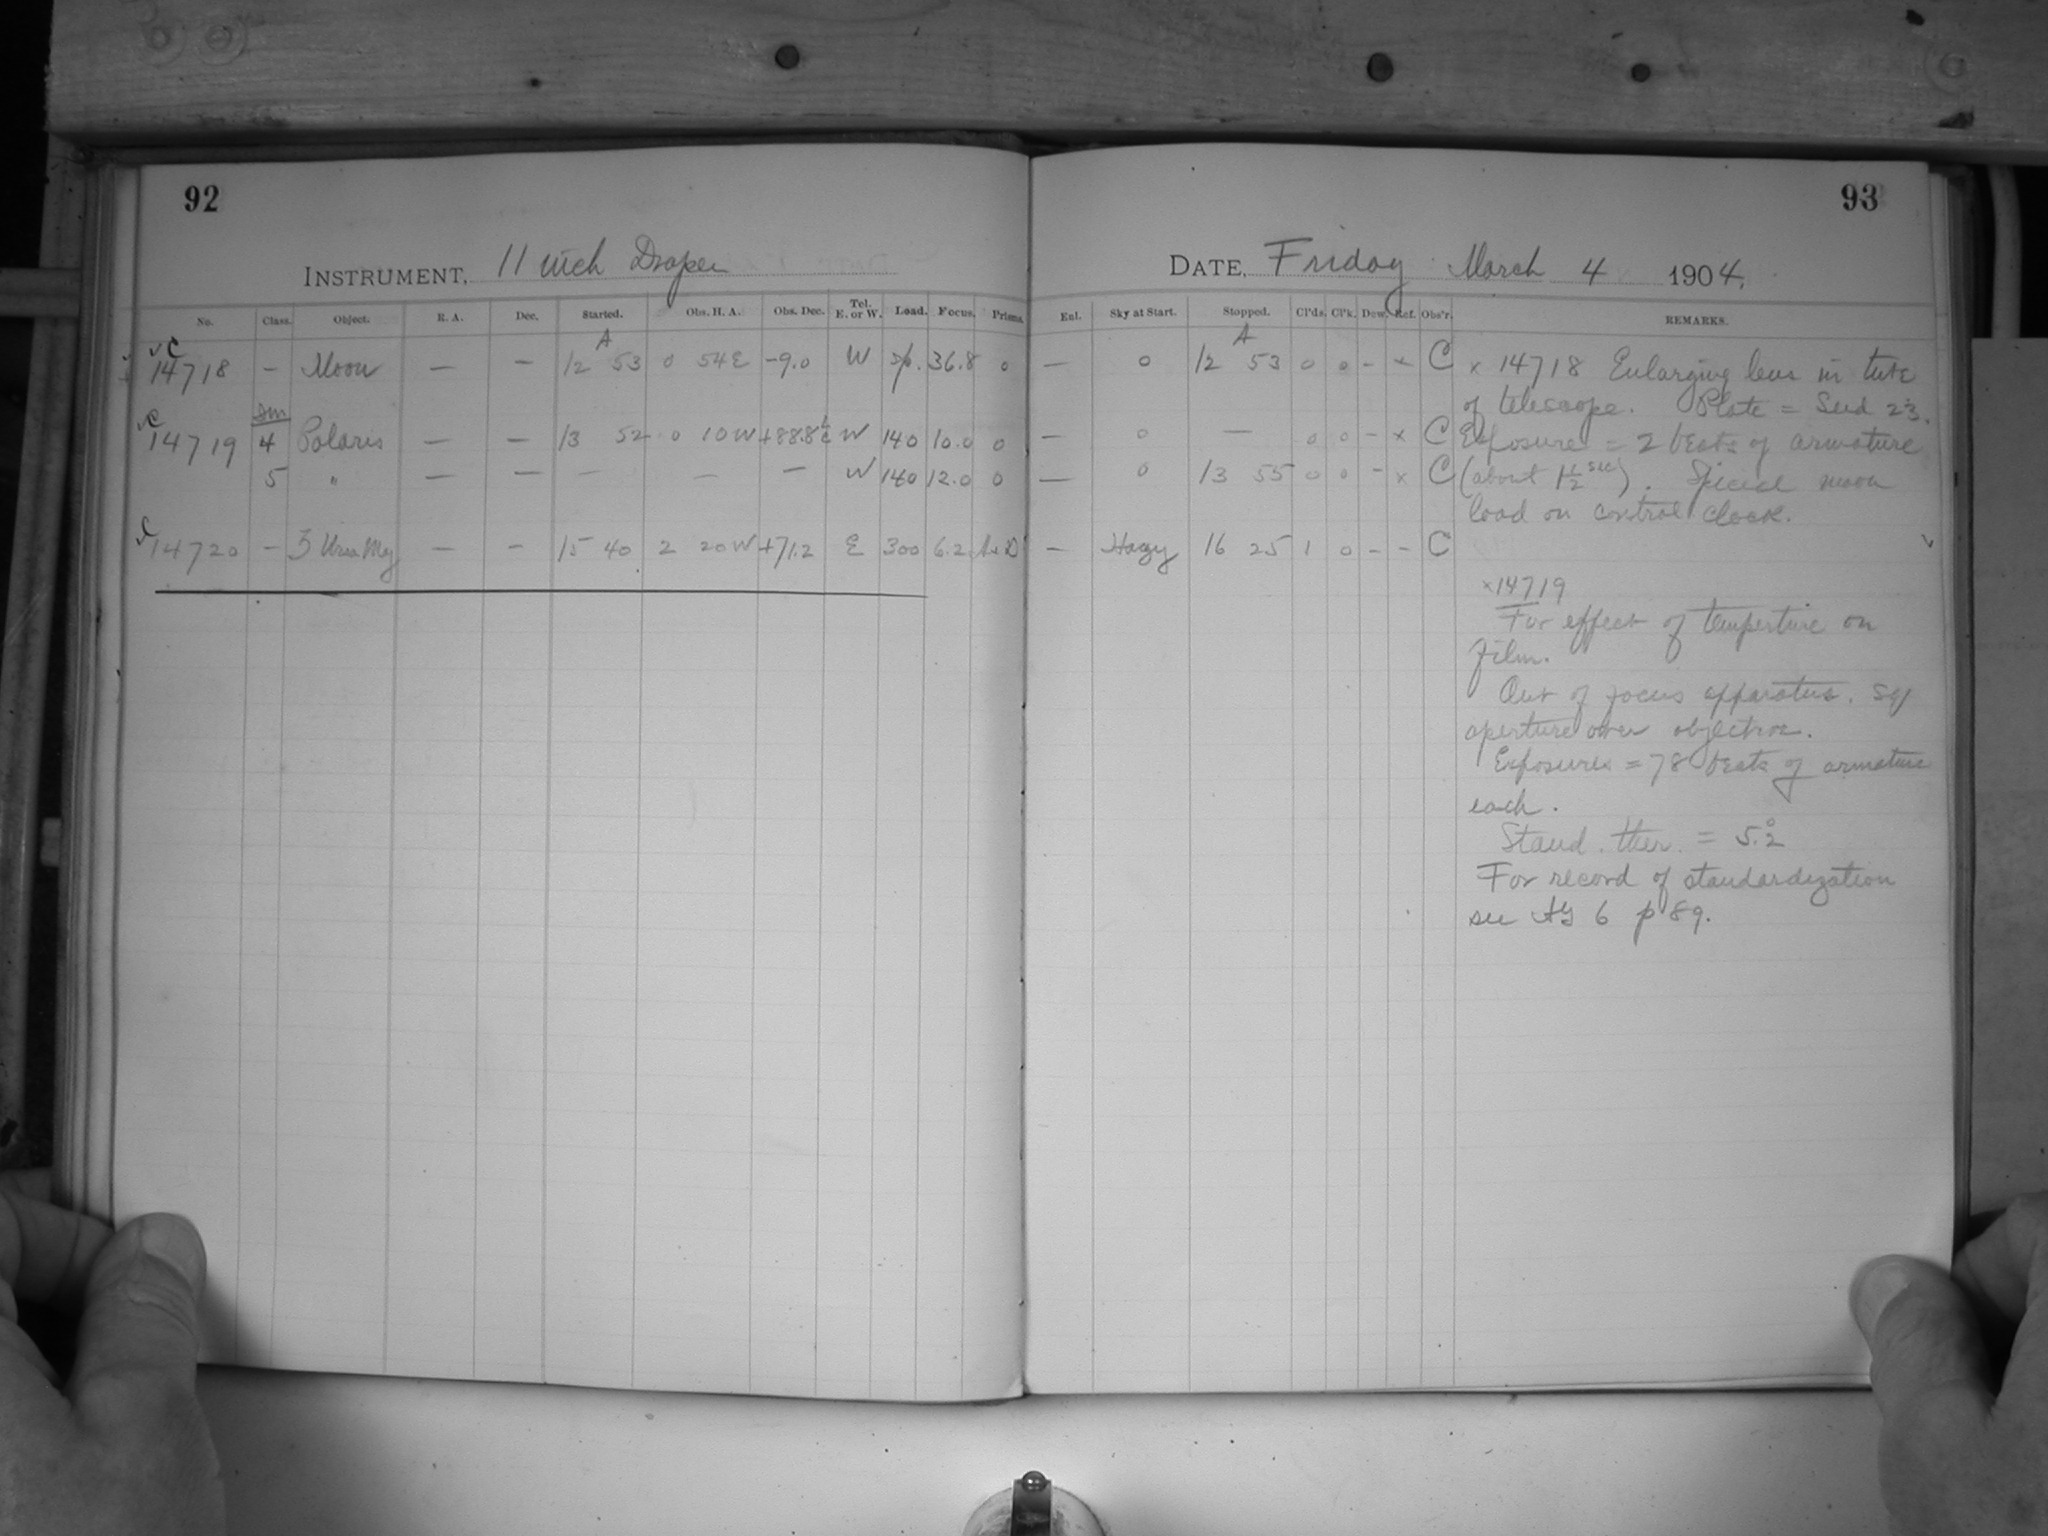 92
INSTRUMENT, 11 inch Draper
No. Class. Object. R. A. Dec. Started. Obs. H. A. Obs. Dec. Tel. E. or W. Load. Focus. Prisms.
A
√C
14718 – Moon — — 12 53 0 54E -9.0 W sp. 36.8 0
Dm
√C
14719 4 Polaris — — 13 52 0 10W +88.8 W 140 10.0 0
5 " — — — — — W 140 12.0 0
14720 – 3 Ursa Maj — – 15 40 2 20W +71.2 E 300 6.2
93
DATE, Friday March 4 1904,
Enl. Sky at Start. Stopped. Cl'ds. Cl'k. Dew. Ref. Obs'r. REMARKS.
A
— 0 12 53 0 0 – x C
— 0 — 0 0 – x C
— 0 13 55 0 0 – x C
— Hazy 16 25 1 0 – – C
x 14718 Enlarging lens in tube
of telescope. Plate = Seed 23.
Exposure = 2 beats of armature
(about 1½ sec). Special moon
load on control clock.
x14719
For effect of temperture on
film.
Out of focus apparatus. Sq
aperture over objective.
Exposures = 78 beats of armature
each.
Stand. ther. = 5.°2
For record of standardization
see AG 6 p 89.